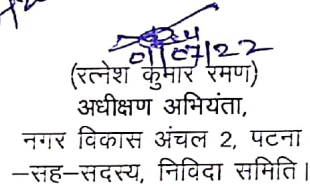 01/07/22
(रत्नेश कुमार रमण)
अधीक्षण अभियंता,
नगर विकास अंचल 2, पटना
–सह–सदस्य, निविदा समिति।